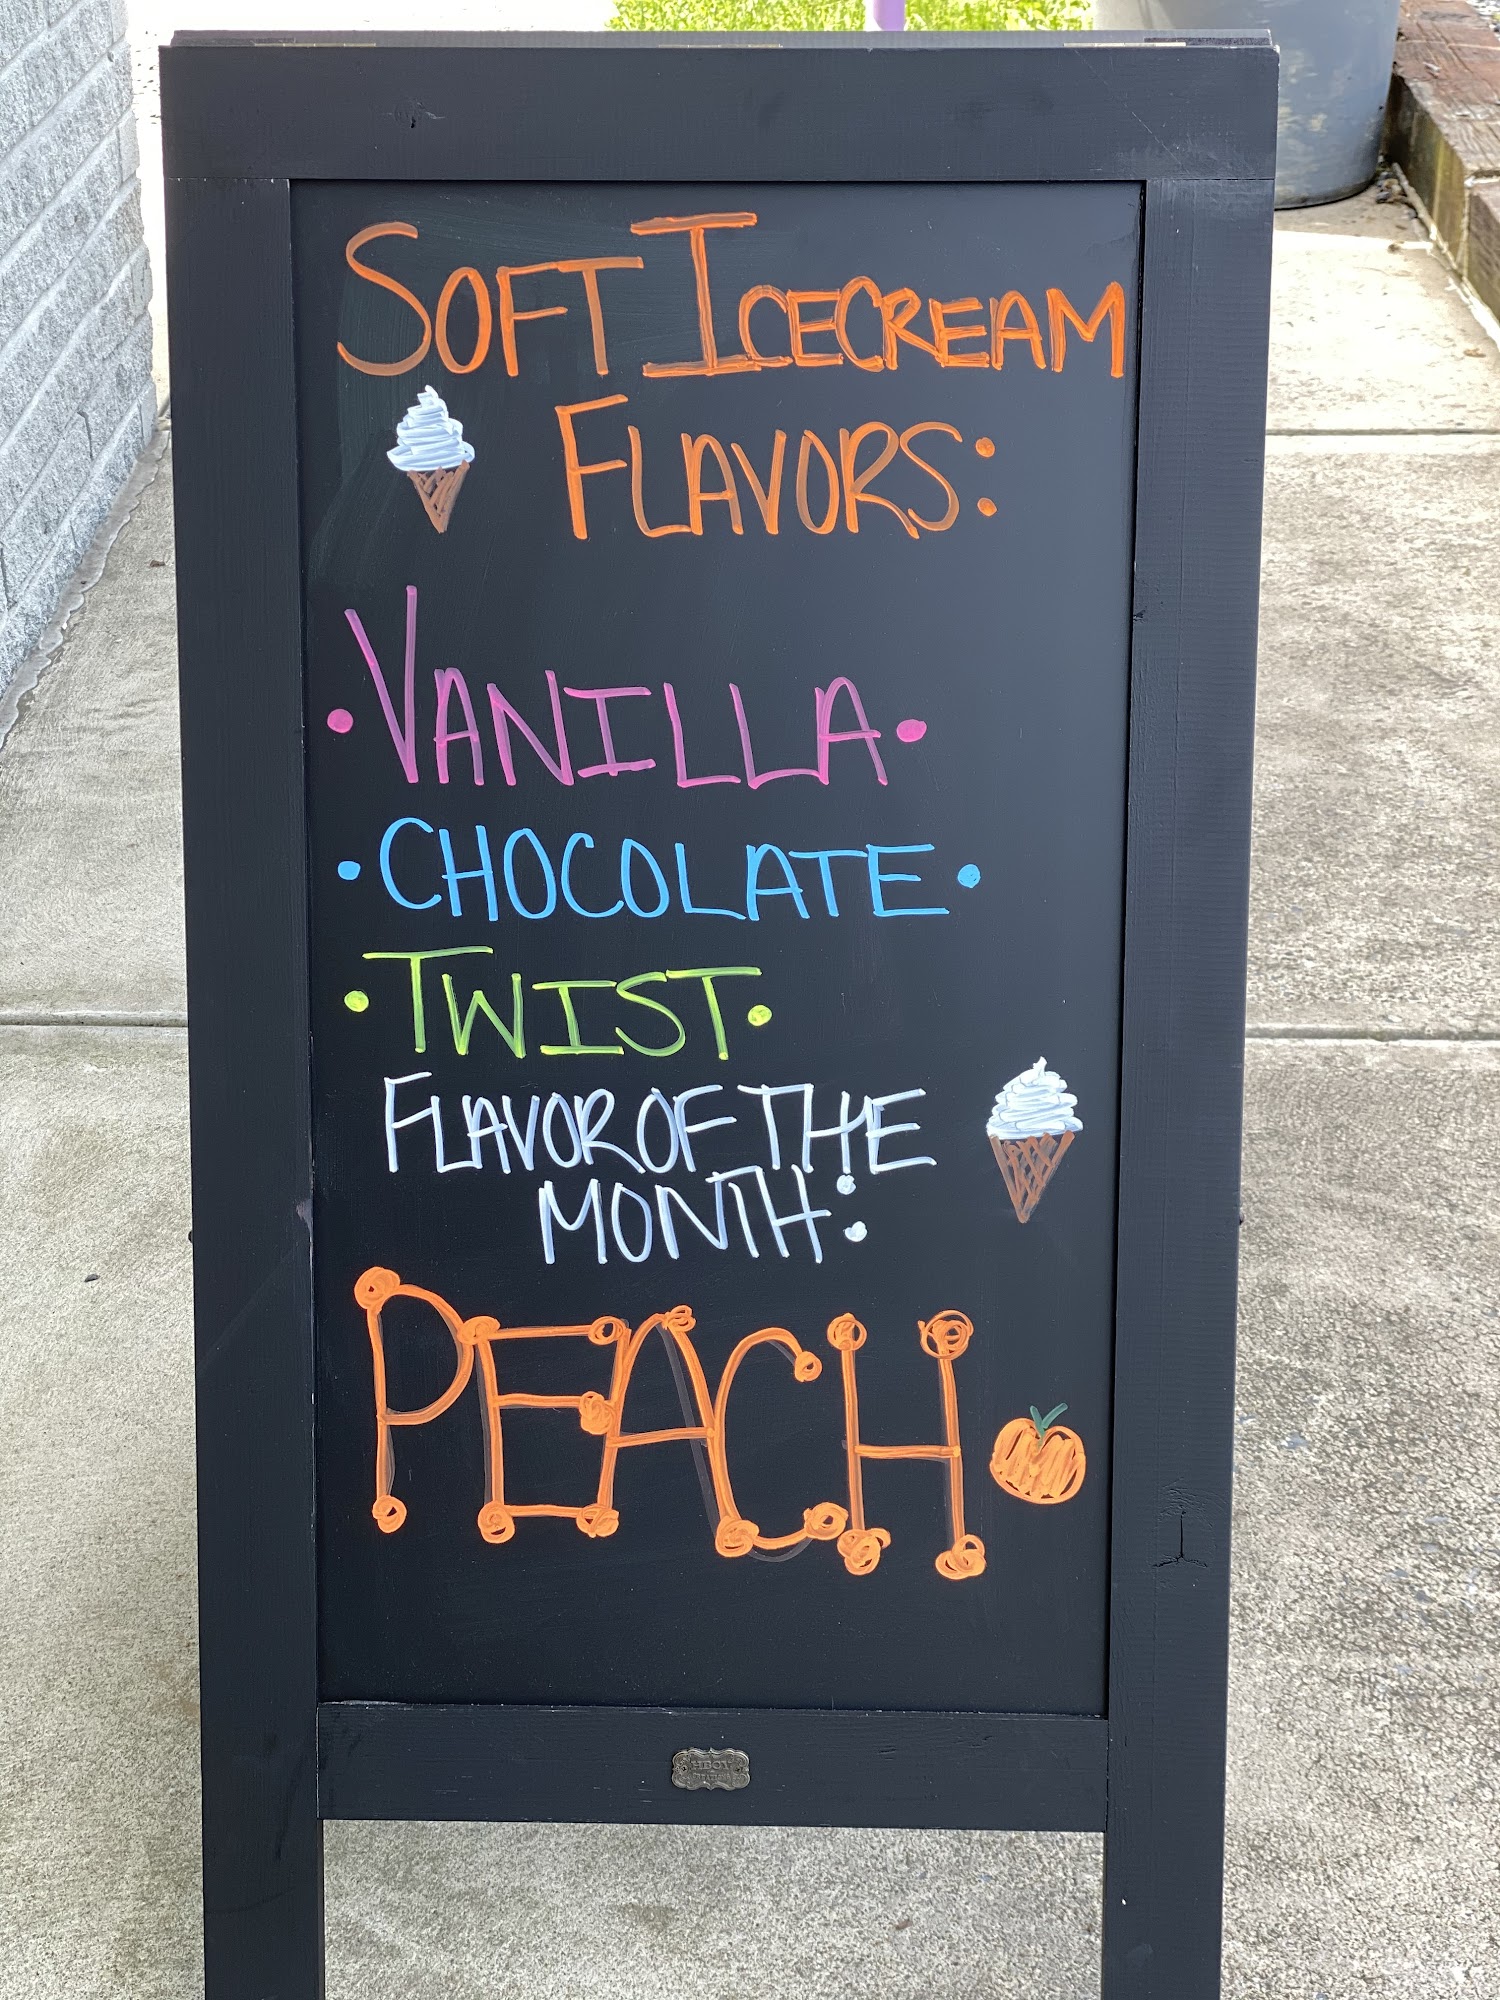 SOFT ICECREAM
FLAVORS:
• VANILLA •
• CHOCOLATE •
• TWIST •
FLAVOR OF THE
MONTH:
PEACH
HBCY
CREATIONS